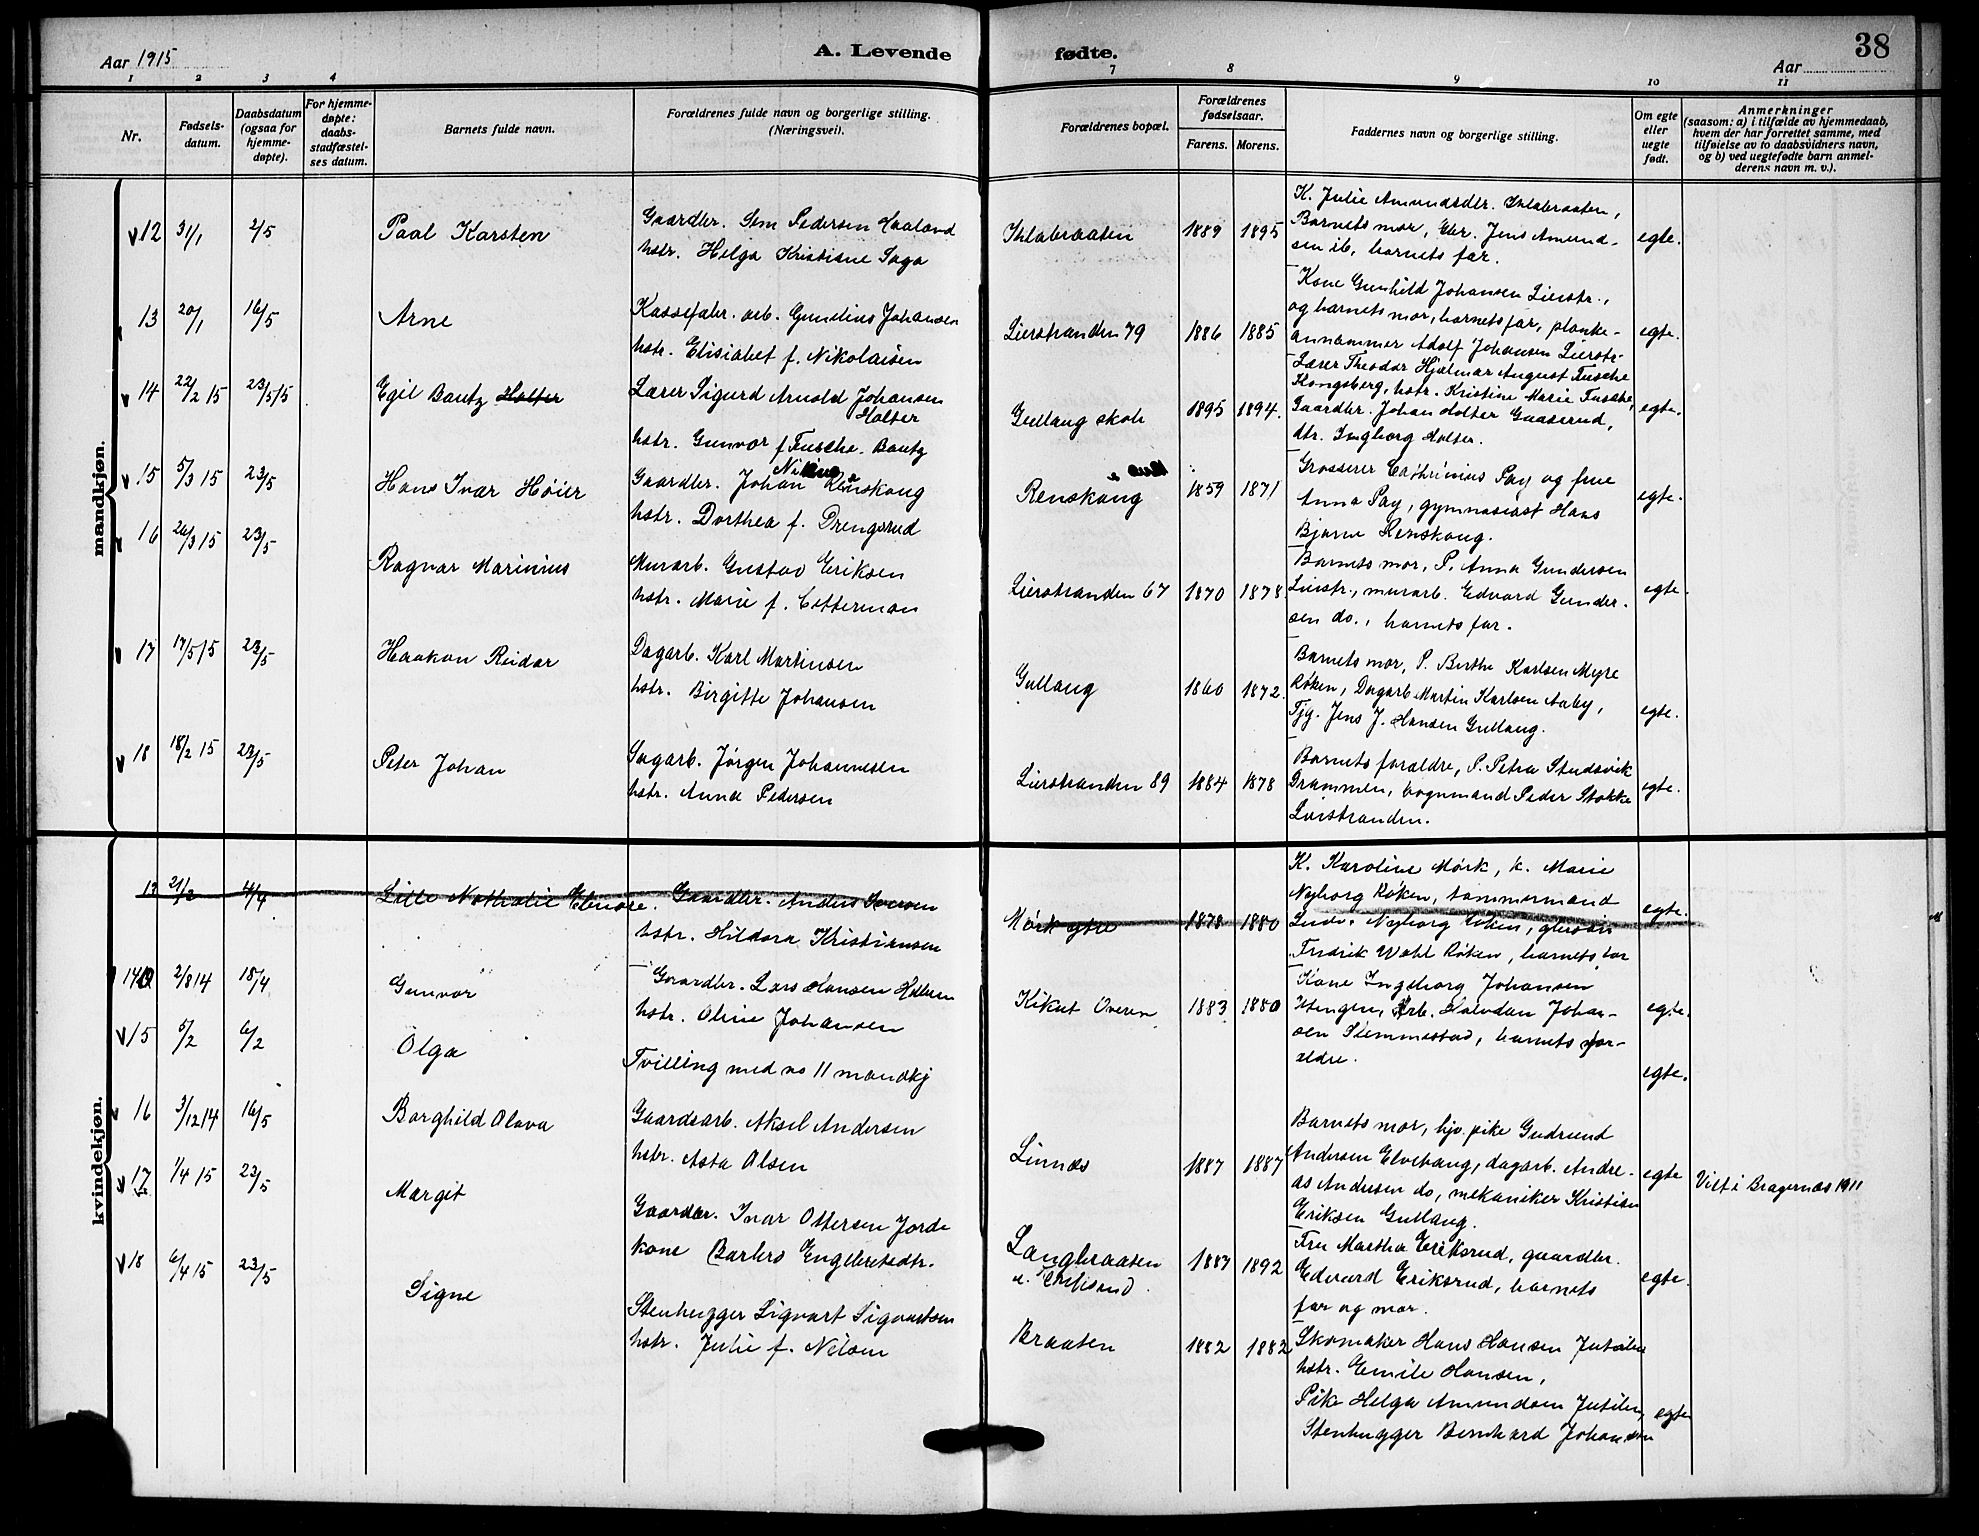 Aar 1915
A. Levende
fødte.
38
Aar
1 2 3 4
7 8 9 10 11
Nr.
Fødsels-
datum.
Daabsdatum
(ogsaa for
hjemme-
døpte).
For hjemme-
døpte:
daabs-
stadfæstel-
ses datum.
Barnets fulde navn.
Forældrenes fulde navn og borgerlige stilling.
(Næringsvei).
Forældrenes bopæl.
Forældrenes
fødselsaar.
Farens. Morens.
Faddernes navn og borgerlige stilling.
Om egte
eller
uegte
født.
Anmerkninger
(saasom: a) i tilfælde av hjemmedaab,
hvem der har forrettet samme, med
tilføielse av to daabsvidners navn,
og b) ved uegtefødte barn anmel-
derens navn m. v.).
mandkjøn.
12 31/1 2/5 Paal Karsten
Gaardbr. Sem Pedersen Haaland
hstr. Helga Kristiane Saga
1889 1895
K. Julie Amundsdtr.
Barnets mor, Gbr. Jens Amund-
sen ib, barnets far.
egte.
13 20/1 16/5 Arne
Kassefabr. arb. Gundius Johansen
hstr. Elisabet f. Nikolaisen
Lierstranden 79 1886 1885
Kone Gunhild Johansen Lierstr.,
og barnets mor, barnets far, planke-
annammer Adolf Johansen Lierstr.
egte.
14 22/2 15 23/5 15 Egil Bautz Holter
Lærer Sigurd Arnold Johansen
Holter
hstr. Gunvor f. Fusche. Bautz
Gullaug skole 1895 1894.
Lærer Theodor Hjalmar August Fusche
Kongsberg, hstr. Kristine Marie Fusche,
Gaardbr. Johan Holter Gaaserud,
dtr. Ingborg Holter.
egte.
15 5/3 15 23/5 Hans Ivar Høier
Gaardbr. Johan Renskoug
hstr. Dorthea f. Drengsrud
Renskoug 1859 1871
Grosserer Pay og frue
Anna Pay, gymnasiast Hans
Bjarne Renskoug.
egte.
16 26/3 15 23/5 Ragnar Marinius
Murarb. Gustav Eriksen
hstr. Marie f. Cetterman
Lierstranden 67 1870 1878
Barnets mor, P. Anna Gundersen
Lierstr., murarb. Edvard Gunder-
sen do., barnets far.
egte.
17 17/5 15 23/5 Haakon Reidar
Dagarb. Karl Martinsen
hstr. Birgitte Johansen
Gullaug 1860 1872.
Barnets mor, P. Birthe Karlsen Myre
Røken, Dagarb. Martin Karlsen Aaby,
Tjg. Jens J. Hansen Gullaug.
egte.
18 18/2 15 23/5 Peter Johan
Sagarb. Jørgen Johannesen
hstr. Anna Pedersen
Lierstranden 89 1884 1878
Barnets forældre, P. Petra Studsvik
Drammen, vognmand Peder Stokke
Lierstranden.
egte.
kvindekjøn.
13 21/2 4/4 Lille Nathalie Elenore.
Gaardbr. Anders Iversen
hstr. Hildora Kristiansen
Mørk ytre 1878 1880
K. Karoline Mørk, k. Marie
Nyborg Røken, tømmermand
Ludv. Nyborg Røken,
Fredrik Wahl Røken, barnets far
egte.
14 2/8 14 18/4 Gunvor
Gaardbr. Lars Hansen
hstr. Oline Johansen
Kikut Overn 1883 1880
Kone Ingeborg Johansen
Arb. Halvdan Johan-
sen Slemmestad, barnets for-
ældre.
egte.
15 5/2 6/2 Olga
Tvilling med no 11 mandkj
egte.
16 3/12 14 16/5 Borghild Olava
Gaardsarb. Aksel Andersen
hstr. Asta Olsen
Linnes 1887 1887
Barnets mor, hjv. pike Gudrund
Andersen Elvebaug, dagarb. Andre-
as Andersen do, mekaniker Kristian
Eriksen Gullaug.
egte
Viet i Bragernæs 1911
17 1/4 15 23/5 Margit
Gaardbr. Ivar Ottersen Jorde
kone Barbro Engebretsdtr.
Langbraaten
1887 1892
Fru Martha Eriksrud, gaardbr.
Edvard Eriksrud, barnets
far og mor.
egte.
18 6/4 15 23/5 Signe
Stenhugger Sigvart Sigvartsen
hstr. Julie f. Nilsen
Braaten 1882 1882
Skomaker Hans Hansen
hstr. Emilie Hansen,
Pike Helga Amundsen
Stenhugger Bernhard Johansen
egte